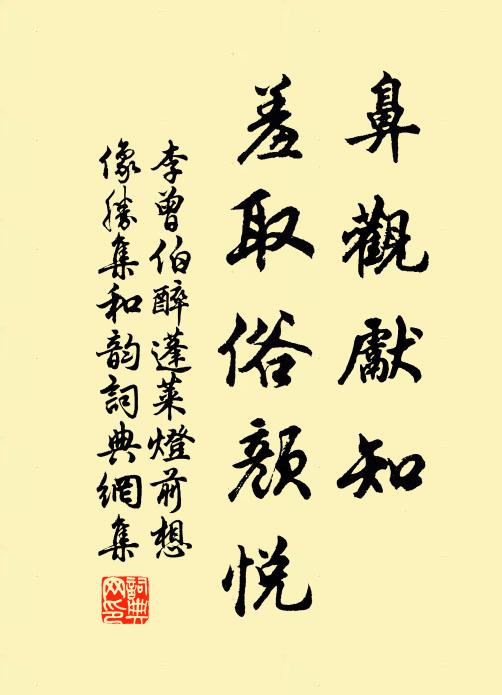 鼻觀獻知
羞取俗顏悅
李曾伯醉蓬萊燈前想
像勝集和韵詞典網集